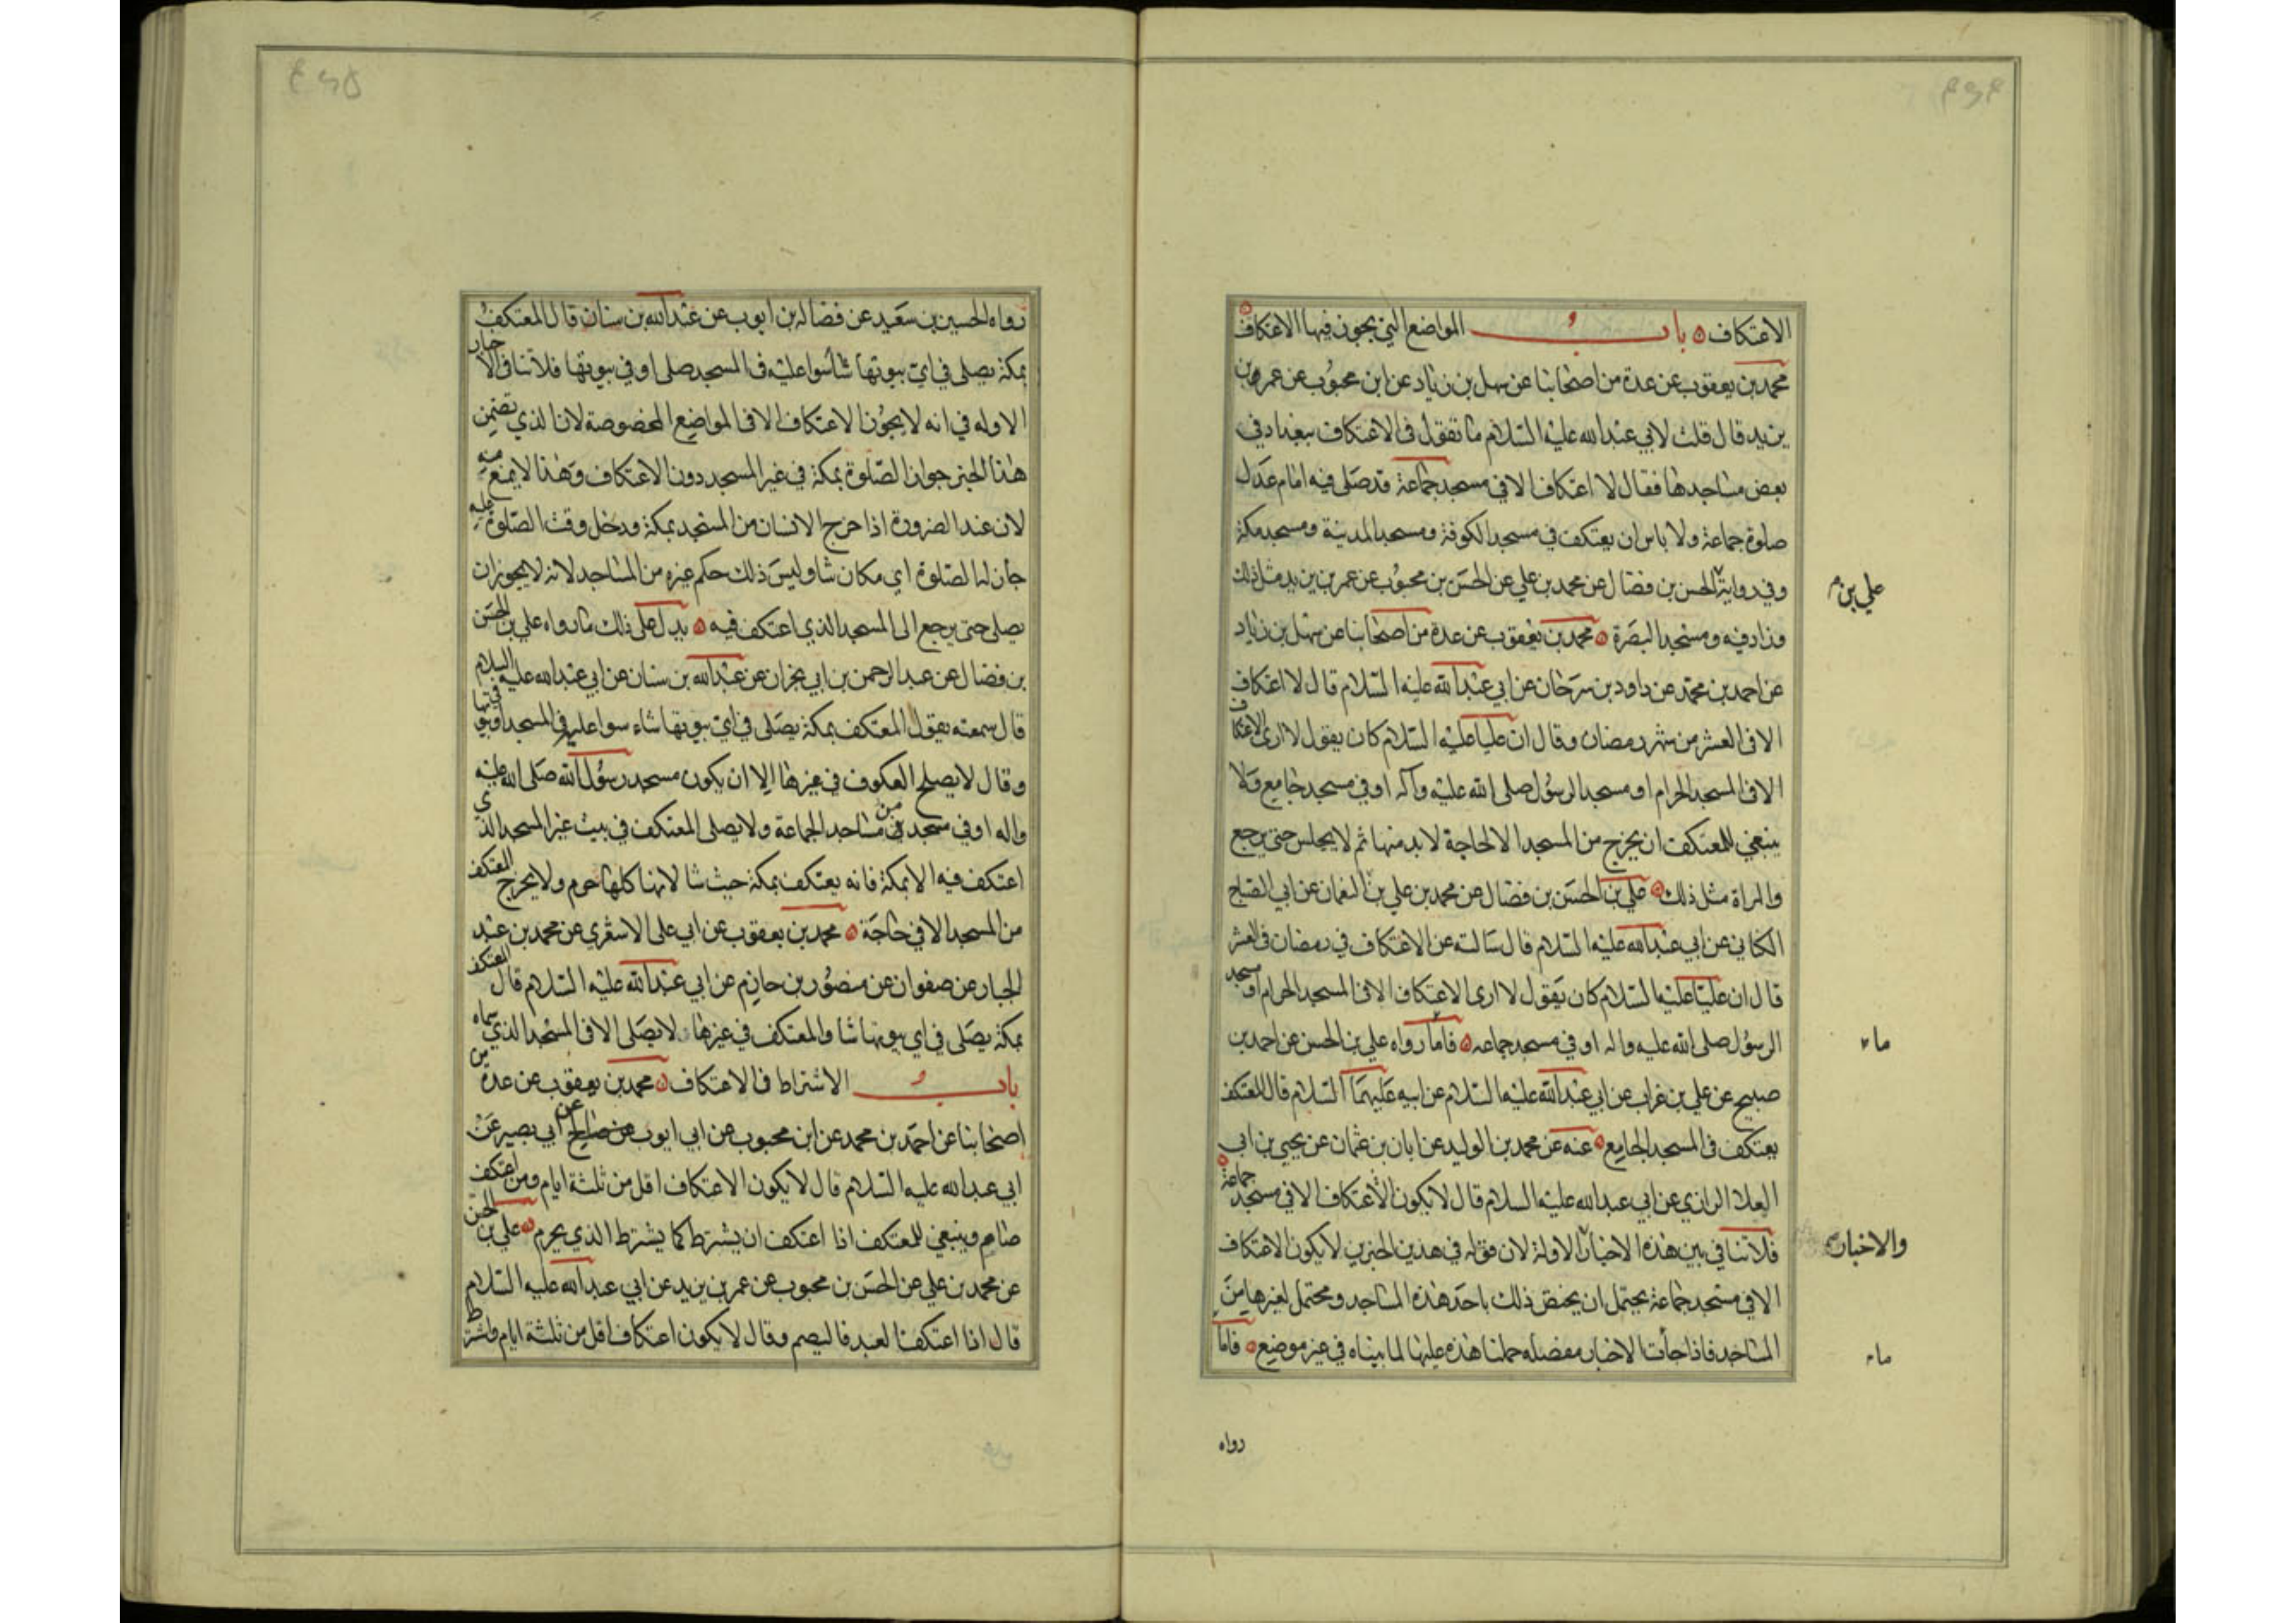 الاعتكاف باب المواضع التي يجوز فيها الاعتكاف
محمد بن يعقوب عن عدة من اصحابنا عن سهل بن زياد عن ابن محبوب عن عمر بن
يزيد قال قلت لابي عبد الله عليه السلام ما تقول في الاعتكاف ببغداد في
بعض مساجدها فقال لا اعتكاف الا في مسجد جماعة قد صلى فيه امام عدل
صلوة جماعة ولا باس ان يعتكف في مسجد الكوفة ومسجد المدينة ومسجد مكة
وفي رواية الحسن بن فضال عن محمد بن علي عن الحسن بن محبوب عن عمر بن يزيد مثل ذلك
علي بن
وزاد فيه ومسجد البصرة محمد بن يعقوب عن عدة من اصحابنا عن سهل بن زياد
عن احمد بن محمد عن داود بن سرحان عن ابي عبد الله عليه السلام قال لا اعتكاف
الا في العشر من شهر رمضان وقال ان عليا عليه السلام كان يقول لا ارى الاعتكاف
الا في المسجد الحرام او مسجد الرسول صلى الله عليه وآله او في مسجد جامع ولا
ينبغي للمعتكف ان يخرج من المسجد الا لحاجة لا بد منها ثم لا يجلس حتى يرجع
والمراة مثل ذلك علي بن الحسن بن فضال عن محمد بن علي بن النعمان عن ابي الصباح
الكناني عن ابي عبد الله عليه السلام قال سالته عن الاعتكاف في رمضان في العشر
قال ان عليا عليه السلام كان يقول لا ارى الاعتكاف الا في المسجد الحرام او مسجد
الرسول صلى الله عليه واله او في مسجد جماعه فاما رواه علي بن الحسن عن احمد بن
ما
صبيح عن علي بن غراب عن ابي عبد الله عليه السلام عن ابيه عليهما السلام قال المعتكف
يعتكف في المسجد الجامع عنه عن محمد بن الوليد عن ابان بن عثمان عن يحيى بن ابي
العلا الرازي عن ابي عبد الله عليه السلام قال لا يكون الاعتكاف الا في مسجد جماعة
فلا تنافي بين هذه الاخبار الاولة لان قوله في هذين الخبرين لا يكون الاعتكاف
والاخبار
الا في مسجد جماعة يحتمل ان يختص ذلك باحد هذه المساجد ومحتمل لغيرها من
المساجد فاذا جأت الاخبار مفصله حملنا هذه عليها لما بيناه في غير موضع فاما
ما
رواه
رواه الحسين بن سعيد عن فضاله بن ايوب عن عبد الله بن سنان قال المعتكف
بمكة يصلي في اي بيوتها شا سوا عليه في المسجد صلى او في بيوتها فلا تنافي الاخبار
الاوله في انه لا يجوز الاعتكاف الا في المواضع المخصوصة لان الذي تضمن
هذا الخبر جواز الصلوة بمكة في غير المسجد دون الاعتكاف وهذا لا يمنع منه
لان عند الضرورة اذا خرج الانسان من المسجد بمكة ودخل وقت الصلوة عليه
جاز له الصلوة اي مكان شا وليس ذلك حكم غيره من المساجد لانه لا يجوز ان
يصلي حتى يرجع الى المسجد الذي اعتكف فيه يدل على ذلك ما رواه علي بن الحسن
بن فضال عن عبد الرحمن بن ابي نجران عن عبد الله بن سنان عن ابي عبد الله عليه السلام
قال سمعته يقول المعتكف بمكة يصلي في اي بيوتها شاء سوا عليه في المسجد او بيوتها
وقال لا يصلح العكوف في غيرها الا ان يكون مسجد رسول الله صلى الله عليه
واله او في مسجد من مساجد الجماعة ولا يصلي المعتكف في بيت غير المسجد الذي
اعتكف فيه الا بمكة فانه يعتكف بمكة حيث شا لانها كلها حرم ولا يخرج المعتكف
من المسجد الا في حاجة محمد بن يعقوب عن ابي علي الاشعري عن محمد بن عبد
الجبار عن صفوان عن منصور بن حازم عن ابي عبد الله عليه السلام قال المعتكف
بمكة يصلي في اي بيوتها شا والمعتكف في غيرها لا يصلي الا في المسجد الذي سماه
باب الاشتراط في الاعتكاف محمد بن يعقوب عن عدة من
اصحابنا عن احمد بن محمد عن ابن محبوب عن ابي ايوب عن ابي بصير عن
ابي عبد الله عليه السلام قال لا يكون الاعتكاف اقل من ثلثة ايام ومن اعتكف
صام وينبغي للمعتكف اذا اعتكف ان يشترط كما يشترط الذي يحرم علي بن الحسن
عن محمد بن علي عن الحسن بن محبوب عن عمر بن يزيد عن ابي عبد الله عليه السلام
قال اذا اعتكف العبد فاليصم وقال لا يكون اعتكاف اقل من ثلثة ايام واشترط